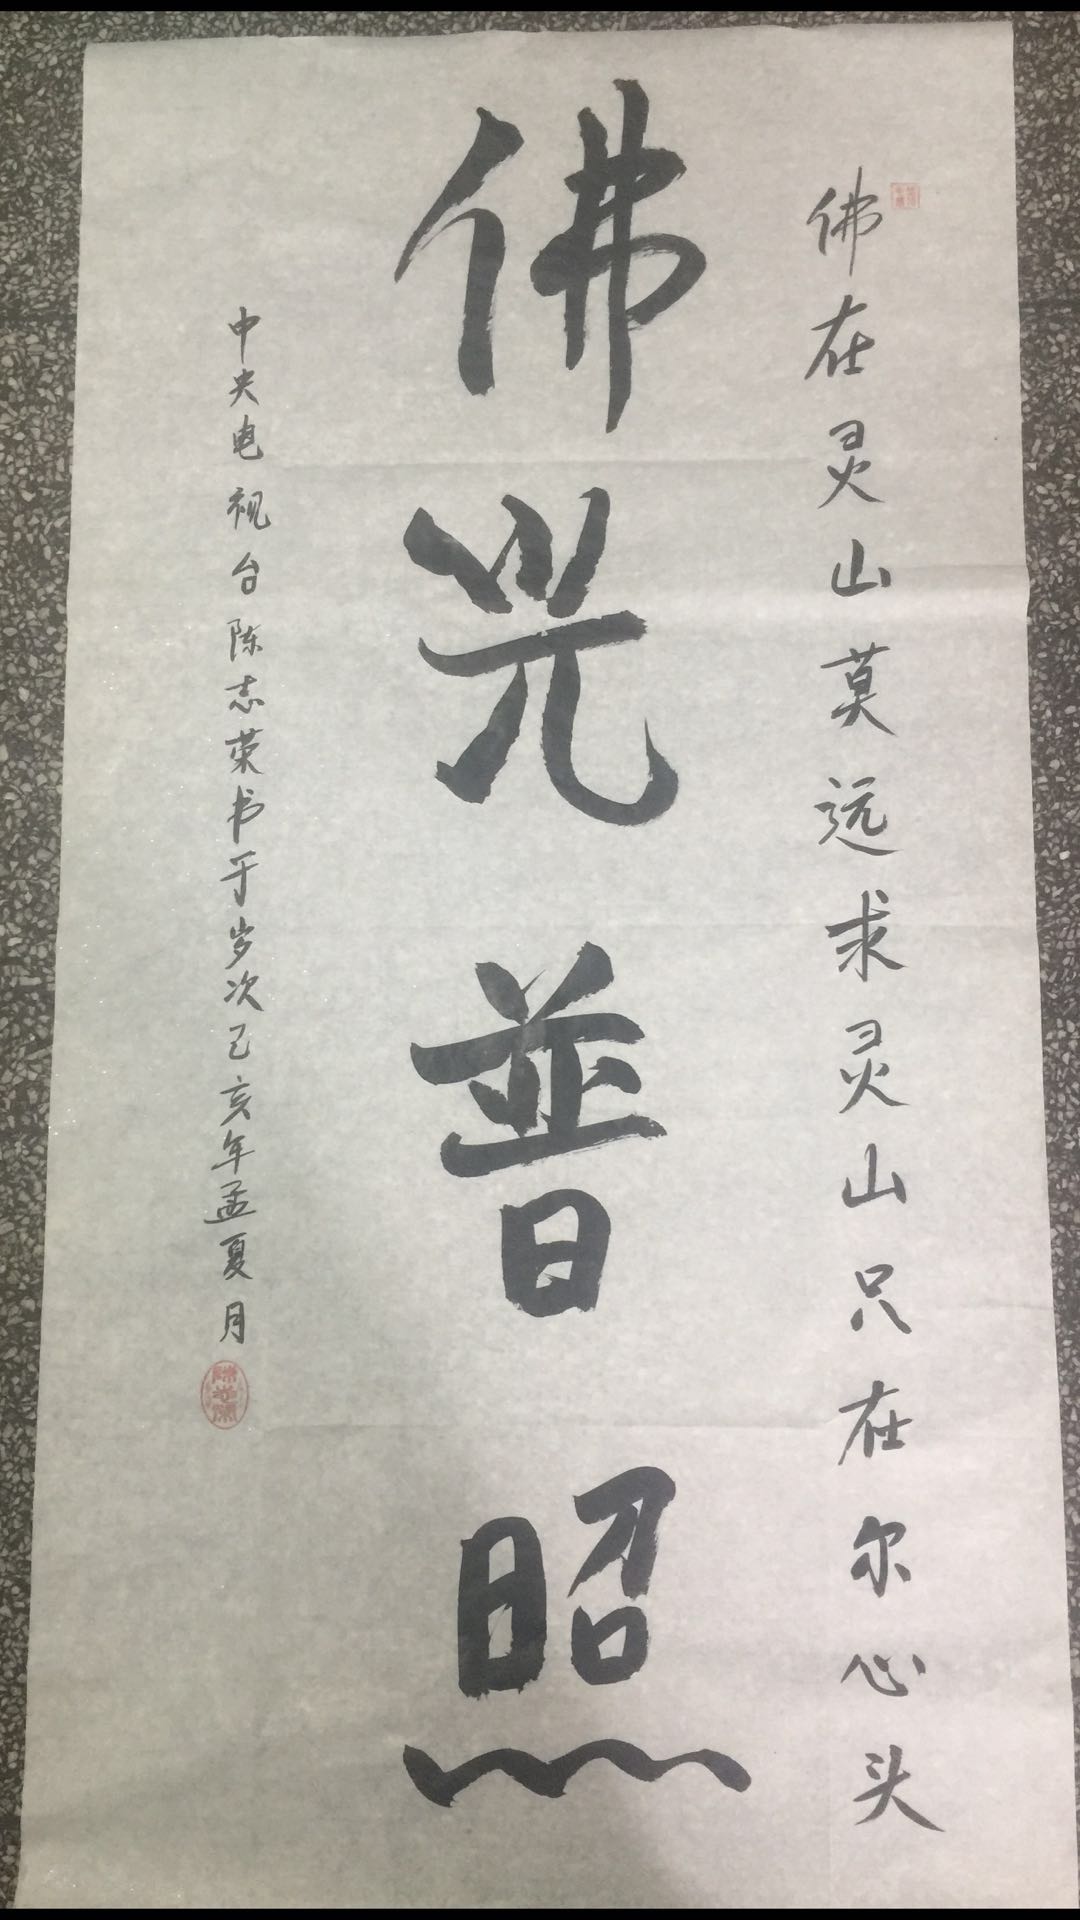 佛在灵山莫远求灵山只在尔心头
佛光普照
中央电视台陈志荣书于岁次己亥年孟夏月